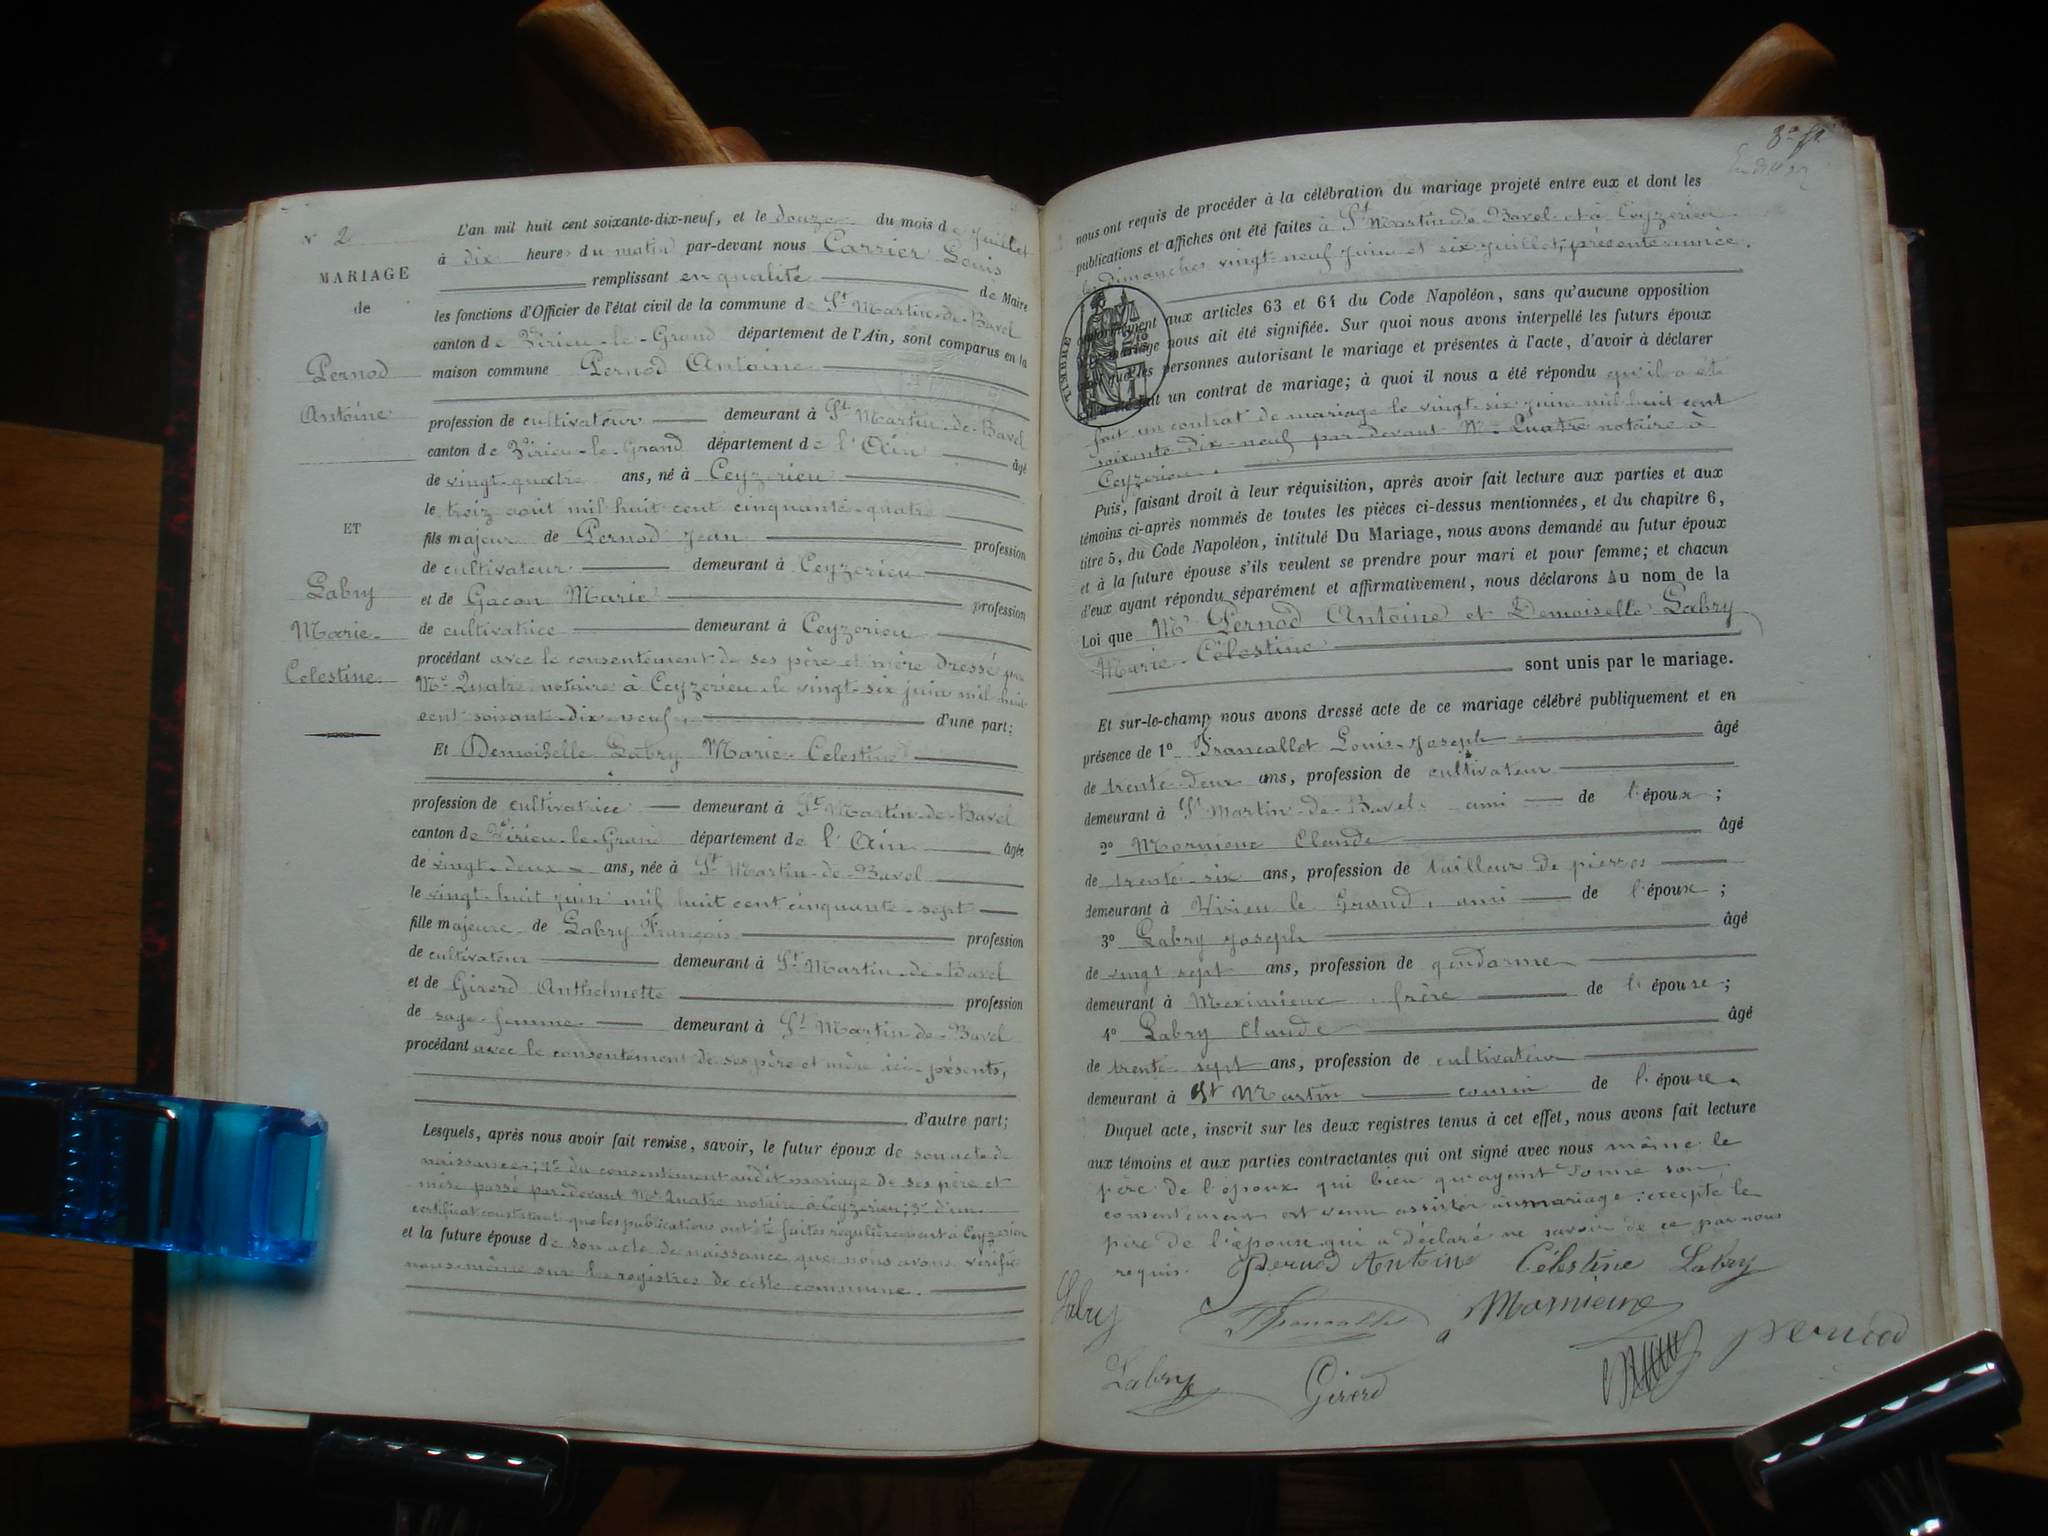 N° 2
MARIAGE
de
Pernod
Antoine
ET
Labry
Marie-
Célestine
L'an mil huit cent soixante-dix-neuf, et le douze du mois de juillet
à dix heures du matin par-devant nous Carrier Louis
remplissant en qualité de Maire
les fonctions d'Officier de l'état civil de la commune de St Martin-de-Bavel
canton de Virieu-le-Grand département de l'Ain, sont comparus en la
maison commune Pernod Antoine
profession de cultivateur demeurant à St Martin-de-Bavel
canton de Virieu-le-Grand département de l'Ain âgé
de vingt-quatre ans, né à Ceyzerieu
le troiz août mil huit cent cinquante-quatre
fils majeur de Pernod Jean profession
de cultivateur demeurant à Ceyzerieu
et de Gacon Marie profession
de cultivatrice demeurant à Ceyzerieu
procédant avec le consentement de ses père et mère dressé par
Me Quatre notaire à Ceyzerieu le vingt-six juin mil huit
cent soixante-dix-neuf, d'une part;
Et Demoizelle Labry Marie-Celestine
profession de cultivatrice demeurant à St Martin-de-Bavel
canton de Virieu-le-Grand département de l'Ain âgée
de vingt-deux ans, née à St Martin-de-Bavel
le vingt-huit juin mil huit cent cinquante-sept
fille majeure de Labry François profession
de cultivateur demeurant à St Martin-de-Bavel
et de Girerd Anthelmette profession
de sage-femme demeurant à St Martin-de-Bavel
procédant avec le consentement de ses père et mère ici-présents,
d'autre part;
Lesquels, après nous avoir fait remise, savoir, le futur époux de son acte de
naissance; 2° du consentement audit mariage de ses père et
mère passé pardevant Me Quatre notaire à Ceyzerieu; 3° d'un
certificat constatant que les publications ont été faites régulièrement à Ceyzerieu
et la future épouse de son acte de naissance que nous avons vérifié
nous-même sur les registres de cette commune.
nous ont requis de procéder à la célébration du mariage projeté entre eux et dont les
publications et affiches ont été faites à St Martin-de-Bavel et à Ceyzerieu
les dimanches vingt-neuf juin et six juillet, présente année,
TIMBRE
conformément aux articles 63 et 64 du Code Napoléon, sans qu'aucune opposition
mariage nous ait été signifiée. Sur quoi nous avons interpellé les futurs époux
que les personnes autorisant le mariage et présentes à l'acte, d'avoir à déclarer
fait un contrat de mariage; à quoi il nous a été répondu qu'il a été
fait un contrat de mariage le vingt-six juin mil huit cent
soixante-dix-neuf par-devant Me Quatre notaire à
Ceyzerieu.
Puis, faisant droit à leur réquisition, après avoir fait lecture aux parties et aux
témoins ci-après nommés de toutes les pièces ci-dessus mentionnées, et du chapitre 6,
titre 5, du Code Napoléon, intitulé Du Mariage, nous avons demandé au futur époux
et à la future épouse s'ils veulent se prendre pour mari et pour femme; et chacun
d'eux ayant répondu séparément et affirmativement, nous déclarons Au nom de la
Loi que Mr Pernod Antoine et Demoiselle Labry
Marie-Célestine
sont unis par le mariage.
Et sur-le-champ nous avons dressé acte de ce mariage célébré publiquement et en
présence de 1° Francallet Louis-Joseph âgé
de trente-deux ans, profession de cultivateur
demeurant à St Martin-de-Bavel, ami de l'époux;
2° Mornieux Claude âgé
de trente-six ans, profession de tailleur de pierres
demeurant à Virieu le Grand, ami de l'époux;
3° Labry Joseph âgé
de vingt sept ans, profession de gendarme
demeurant à Meximieux, frère de l'épouse;
4° Labry Claude âgé
de trente-sept ans, profession de cultivateur
demeurant à St Martin cousin de l'épouse.
Duquel acte, inscrit sur les deux registres tenus à cet effet, nous avons fait lecture
aux témoins et aux parties contractantes qui ont signé avec nous même le
père de l'époux qui bien qu'ayant donné son
consentement est venu assister au mariage; excepté le
père de l'épouse qui a déclaré ne savoir de ce par nous
requis. Pernod Antoine Célestine Labry
Labry Francallet Mornieux
Labry Girerd Pernod